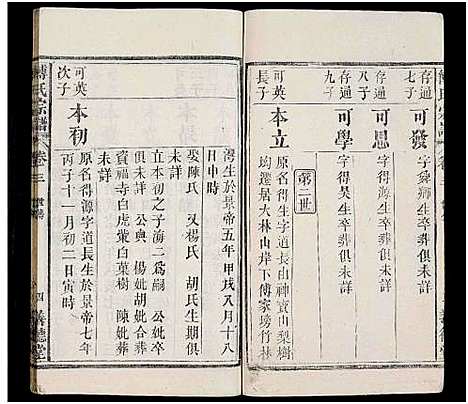 存通
七子
可發
字得舜師生卒葬俱未詳
存通
八子
可思
字得源生卒葬俱未詳
存通
九子
可學
字得吳生卒葬俱未詳
第二世
可英
長子
本立
原名得生字道長由神寶山梨樹
均遷居大林山岸下傅家塝竹林
灣生於景帝五年甲戌八月十八
日申時
娶陳氏 又楊氏 胡氏生期俱
未詳
立本初公次子海二爲嗣 公妣卒
俱未詳 公與 楊妣胡妣合葬
資福寺白虎葉白菓樹 陳妣葬
未詳
可英
次子
本初
原名得源字道長生於景帝七年
丙子十一月初二日寅時
傅氏宗譜
卷三
世系
四
善德堂